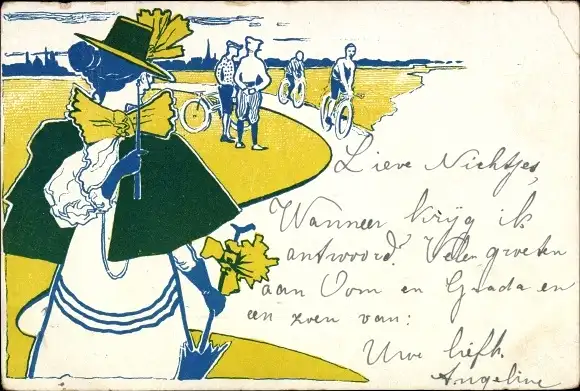 Lieve Nichtjes,
Wanneer krijg ik
antwoord? Velen groeten
aan Oom en Grada en
een zoen van:
Uwe liefh.
Angeline